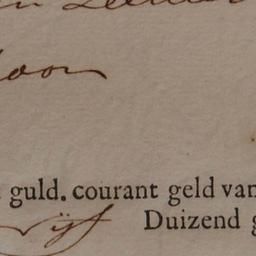 oon
guld. courant geld van
vijf Duizend g